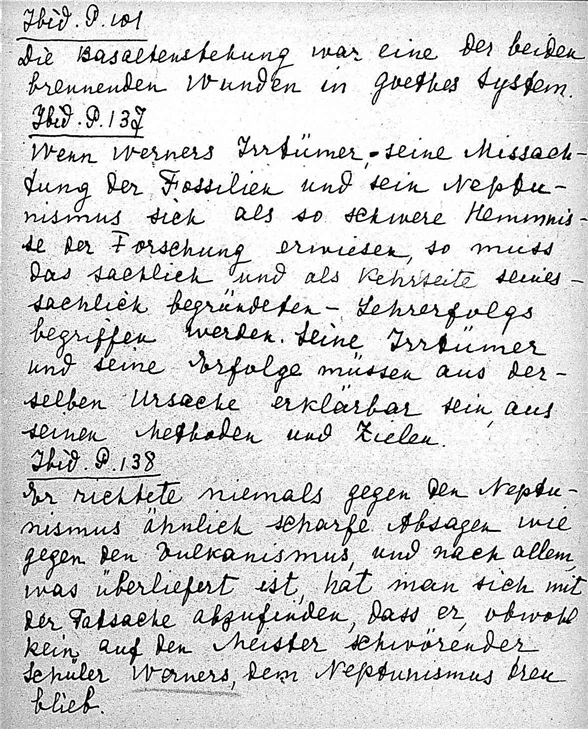 Ibid. P. 101
Die Basaltenstehung war eine der beiden
brennenden Wunden in Goethes System.
Ibid. P. 137
Wenn Werners Irrtümer, seine Missach-
tung der Fossilien und sein Neptu-
nismus sich als so schwere Hemmnis-
se der Forschung erwiesen, so muss
das sachlich und als Kehrseite seines -
sachlich begründeten - Lehrerfolgs
begriffen werden. Seine Irrtümer
und seine Erfolge müssen aus der-
selben Ursache erklärbar sein, aus
seinen Methoden und Zielen.
Ibid. P. 138
Er richtete niemals gegen den Neptu-
nismus ähnlich scharfe Absagen wie
gegen den Vulkanismus, und nach allem,
was überliefert ist, hat man sich mit
der Tatsache abzufinden, dass er, obwohl
kein auf den Meister schwörender
Schüler Werners, dem Neptunismus treu
blieb.